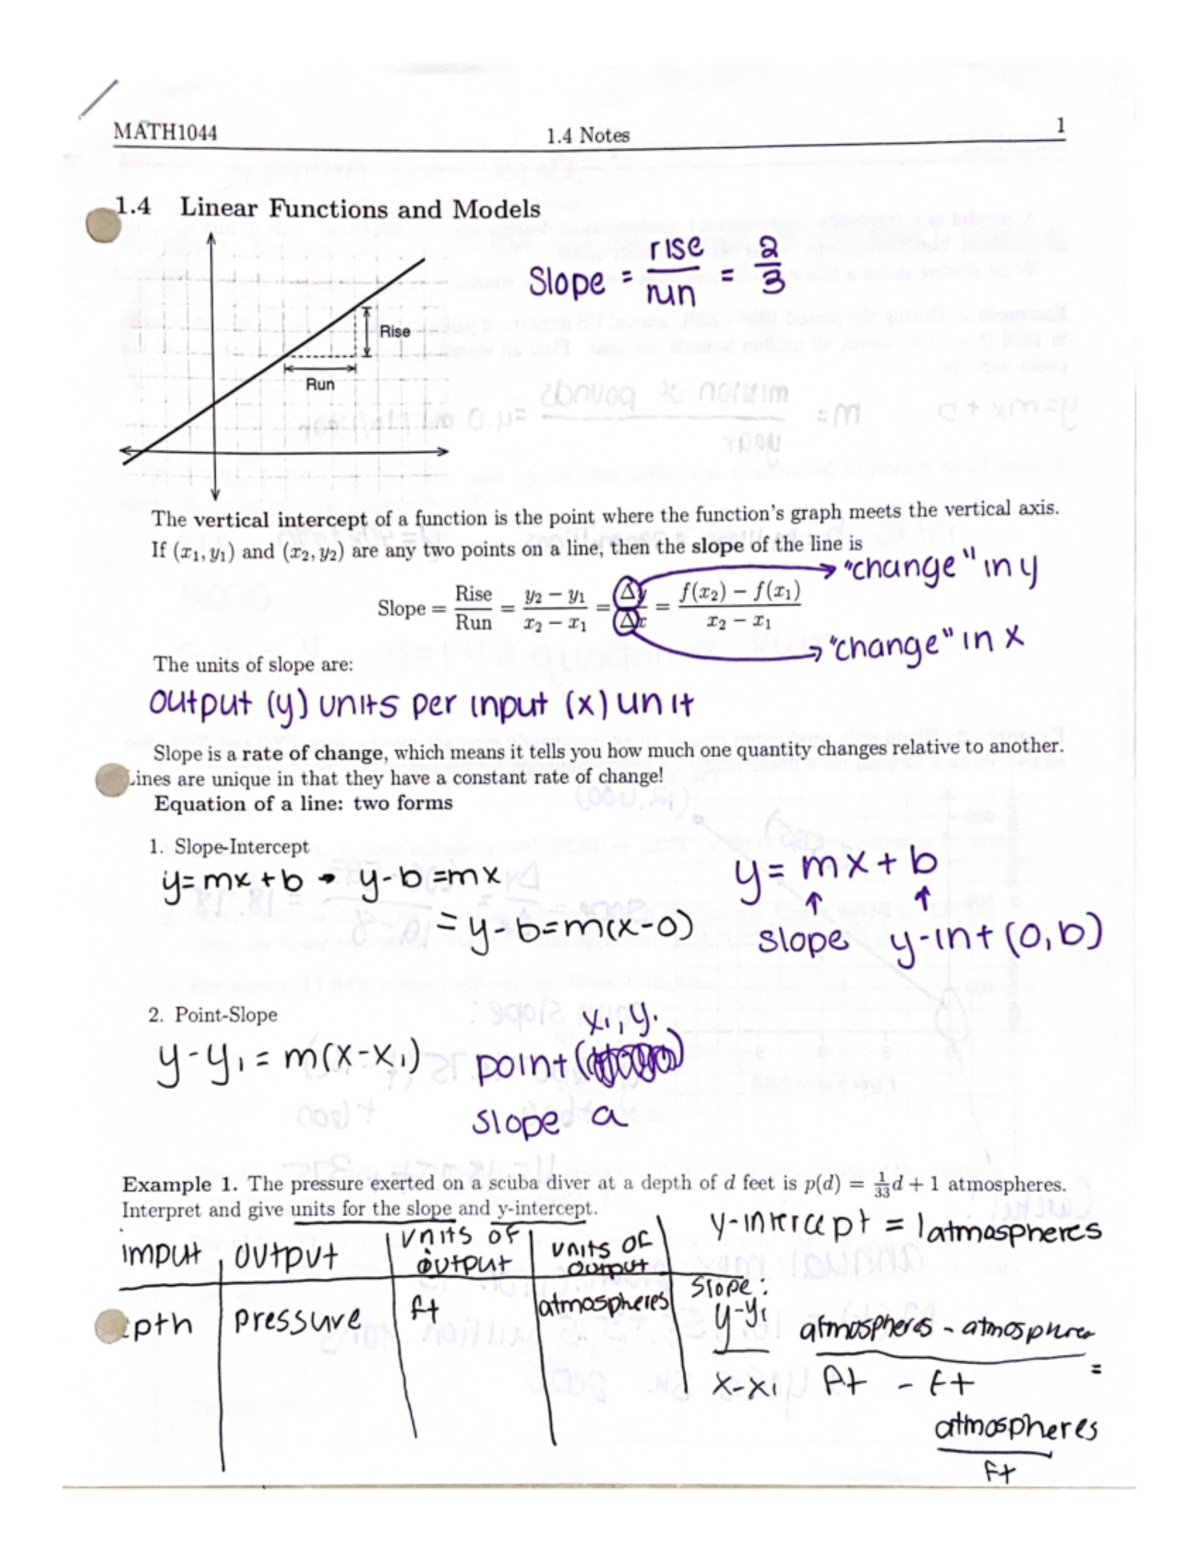 MATH1044 1.4 Notes 1
1.4 Linear Functions and Models
Slope = rise/run = 2/3
Rise
Run
The vertical intercept of a function is the point where the function's graph meets the vertical axis.
If (x₁, y₁) and (x₂, y₂) are any two points on a line, then the slope of the line is
"change" in y
Slope = Rise/Run = (y₂ − y₁)/(x₂ − x₁) = Δy/Δx = (f(x₂) − f(x₁))/(x₂ − x₁)
"change" in x
The units of slope are:
output (y) units per input (x) unit
Slope is a rate of change, which means it tells you how much one quantity changes relative to another.
Lines are unique in that they have a constant rate of change!
Equation of a line: two forms
1. Slope-Intercept
y = mx + b → y-b = mx
= y-b = m(x-0)
y = mx + b
↑ ↑
slope y-int (0,b)
2. Point-Slope
y-y₁ = m(x-x₁)
x₁, y₁
point ( )
slope a
Example 1. The pressure exerted on a scuba diver at a depth of d feet is p(d) = 1/33 d + 1 atmospheres.
Interpret and give units for the slope and y-intercept.
imput output units of output units of output
pth pressure ft atmospheres
y-intercept = 1 atmospheres
Slope:
y-y₁/x-x₁ atmospheres - atmospheres/ft - ft =
atmospheres/ft